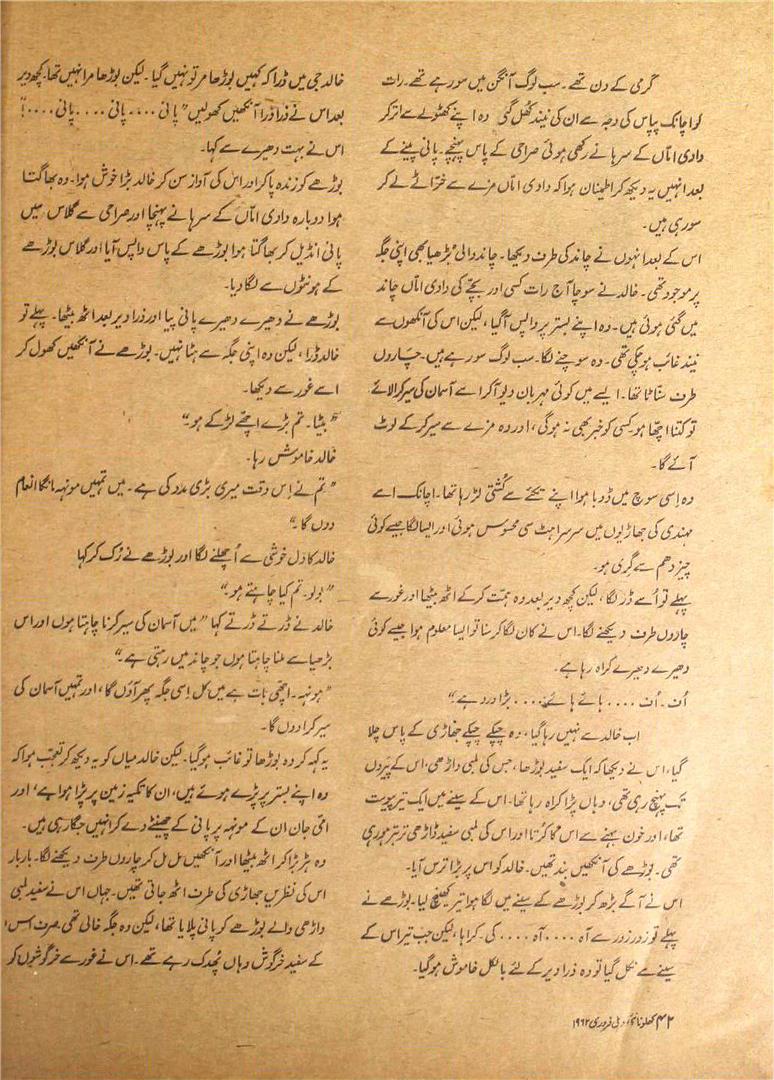 گرمی کے دن تھے۔ سب لوگ آنگن میں سو رہے تھے۔ رات
کو اچانک پیاس کی وجہ سے ان کی نیند کھل گئی وہ اپنے کھٹولے سے اتر کر
دادی امّاں کے سرہانے رکھی ہوئی صراحی کے پاس پہنچے۔ پانی پینے کے
بعد انہیں یہ دیکھ کر اطمینان ہوا کہ دادی امّاں مزے سے خرّاٹے لے کر
سو رہی ہیں۔
اس کے بعد انہوں نے چاند کی طرف دیکھا۔ چاند والی بڑھیا بھی اپنی جگہ
پر موجود تھی۔ خالد نے سوچا آج رات کسی اور بچّے کی دادی امّاں چاند
میں گئی ہوئی ہیں۔ وہ اپنے بستر پر واپس آ گیا، لیکن اس کی آنکھوں سے
نیند غائب ہو چکی تھی۔ وہ سوچنے لگا۔ سب لوگ سو رہے ہیں۔ چاروں
طرف سنّاٹا تھا۔ ایسے میں کوئی مہربان دیو آ کر اسے آسمان کی سیر کرا لائے
تو کتنا اچھا ہو کسی کو خبر بھی نہ ہو گی، اور وہ مزے سے سیر کر کے لوٹ
آئے گا۔
وہ اسی سوچ میں ڈوبا ہوا اپنے تکئے سے کُشتی لڑ رہا تھا۔ اچانک اسے
مہندی کی جھاڑیوں میں سرسراہٹ سی محسوس ہوئی اور ایسا لگا جیسے کوئی
چیز دھم سے گری ہو۔
پہلے تو اُسے ڈر لگا، لیکن کچھ دیر بعد وہ ہمّت کر کے اٹھ بیٹھا اور غور سے
چاروں طرف دیکھنے لگا۔ اس نے کان لگا کر سنا تو ایسا معلوم ہوا جیسے کوئی
دھیرے دھیرے کراہ رہا ہے۔
اُف۔ اُف .... ہائے ہائے .... بڑا درد ہے۔"
اب خالد سے نہیں رہا گیا، وہ چپکے چپکے جھاڑی کے پاس چلا
گیا، اس نے دیکھا کہ ایک سفید بوڑھا، جس کی لمبی داڑھی، اس کے پیروں
تک پہنچ رہی تھی، وہاں پڑا کراہ رہا تھا۔ اس کے سینے میں ایک تیر پیوست
تھا، اور خون بہنے سے اس کا کُرتا اور اس کی لمبی سفید ڈاڑھی تر بتر ہو رہی
تھی۔ بوڑھے کی آنکھیں بند تھیں۔ خالد کو اس پر بڑا ترس آیا۔
اس نے آگے بڑھ کر بوڑھے کے سینے میں لگا ہوا تیر کھینچ لیا۔ بوڑھے نے
پہلے تو زور زور سے آہ .... آہ .... کی۔ کراہا، لیکن جب تیر اس کے
سینے سے نکل گیا تو وہ ذرا دیر کے لئے بالکل خاموش ہو گیا۔
خالد جی میں ڈرا کہ کہیں بوڑھا مر تو نہیں گیا۔ لیکن بوڑھا مرا نہیں تھا۔ کچھ دیر
بعد اس نے ذرا ذرا آنکھیں کھولیں "پانی .... پانی .... پانی ....!"
اس نے بہت دھیرے سے کہا۔
بوڑھے کو زندہ پا کر اور اس کی آواز سن کر خالد بڑا خوش ہوا۔ وہ بھاگتا
ہوا دوبارہ دادی امّاں کے سرہانے پہنچا اور صراحی سے گلاس میں
پانی انڈیل کر بھاگتا ہوا بوڑھے کے پاس واپس آیا اور گلاس بوڑھے
کے ہونٹوں سے لگا دیا۔
بوڑھے نے دھیرے دھیرے پانی پیا اور ذرا دیر بعد اٹھ بیٹھا۔ پہلے تو
خالد ڈرا، لیکن وہ اپنی جگہ سے ہٹا نہیں۔ بوڑھے نے آنکھیں کھول کر
اسے غور سے دیکھا۔
"بیٹا۔ تم بڑے اچھے لڑکے ہو۔"
خالد خاموش رہا۔
"تم نے اس وقت میری بڑی مدد کی ہے۔ میں تمہیں مونہہ مانگا انعام
دوں گا۔"
خالد کا دل خوشی سے اُچھلنے لگا اور بوڑھے نے رُک کر کہا
"بولو۔ تم کیا چاہتے ہو۔"
خالد نے ڈرتے ڈرتے کہا "میں آسمان کی سیر کرنا چاہتا ہوں اور اس
بڑھیا سے ملنا چاہتا ہوں جو چاند میں رہتی ہے۔"
"ہونہہ۔ اچھی بات ہے میں کل اسی جگہ پھر آؤں گا، اور تمہیں آسمان کی
سیر کرا دوں گا۔
یہ کہہ کر وہ بوڑھا تو غائب ہو گیا۔ لیکن خالد میاں کو یہ دیکھ کر تعجّب ہوا کہ
وہ اپنے بستر پر پڑے ہوئے ہیں، ان کا تکیہ زمین پر پڑا ہوا ہے، اور
امّی جان ان کے مونہہ پر پانی کے چھینٹے دے کر انہیں جگا رہی ہیں۔
وہ ہڑبڑا کر اٹھ بیٹھا اور آنکھیں مل مل کر چاروں طرف دیکھنے لگا۔ بار بار
اس کی نظریں جھاڑی کی طرف اٹھ جاتی تھیں۔ جہاں اس نے سفید لمبی
داڑھی والے بوڑھے کو پانی پلایا تھا، لیکن وہ جگہ خالی تھی صرف اس
کے سفید خرگوش وہاں پھدک رہے تھے۔ اس نے غور سے خرگوشوں کو
۴۲ کھلونا نئی دہلی فروری ۱۹۶۲